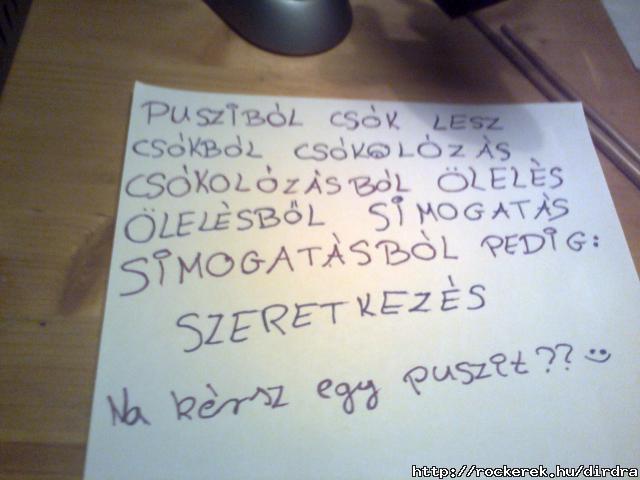 PUSZIBÓL CSÓK LESZ
CSÓKBÓL CSÓKOLÓZÁS
CSÓKOLÓZÁSBÓL ÖLELÈS
ÖLELÈSBŐL SIMOGATÁS
SIMOGATÀSBÒL PEDIG:
SZERETKEZÈS
Na kèrsz egy puszit?? :)
http://rockerek.hu/dirdra